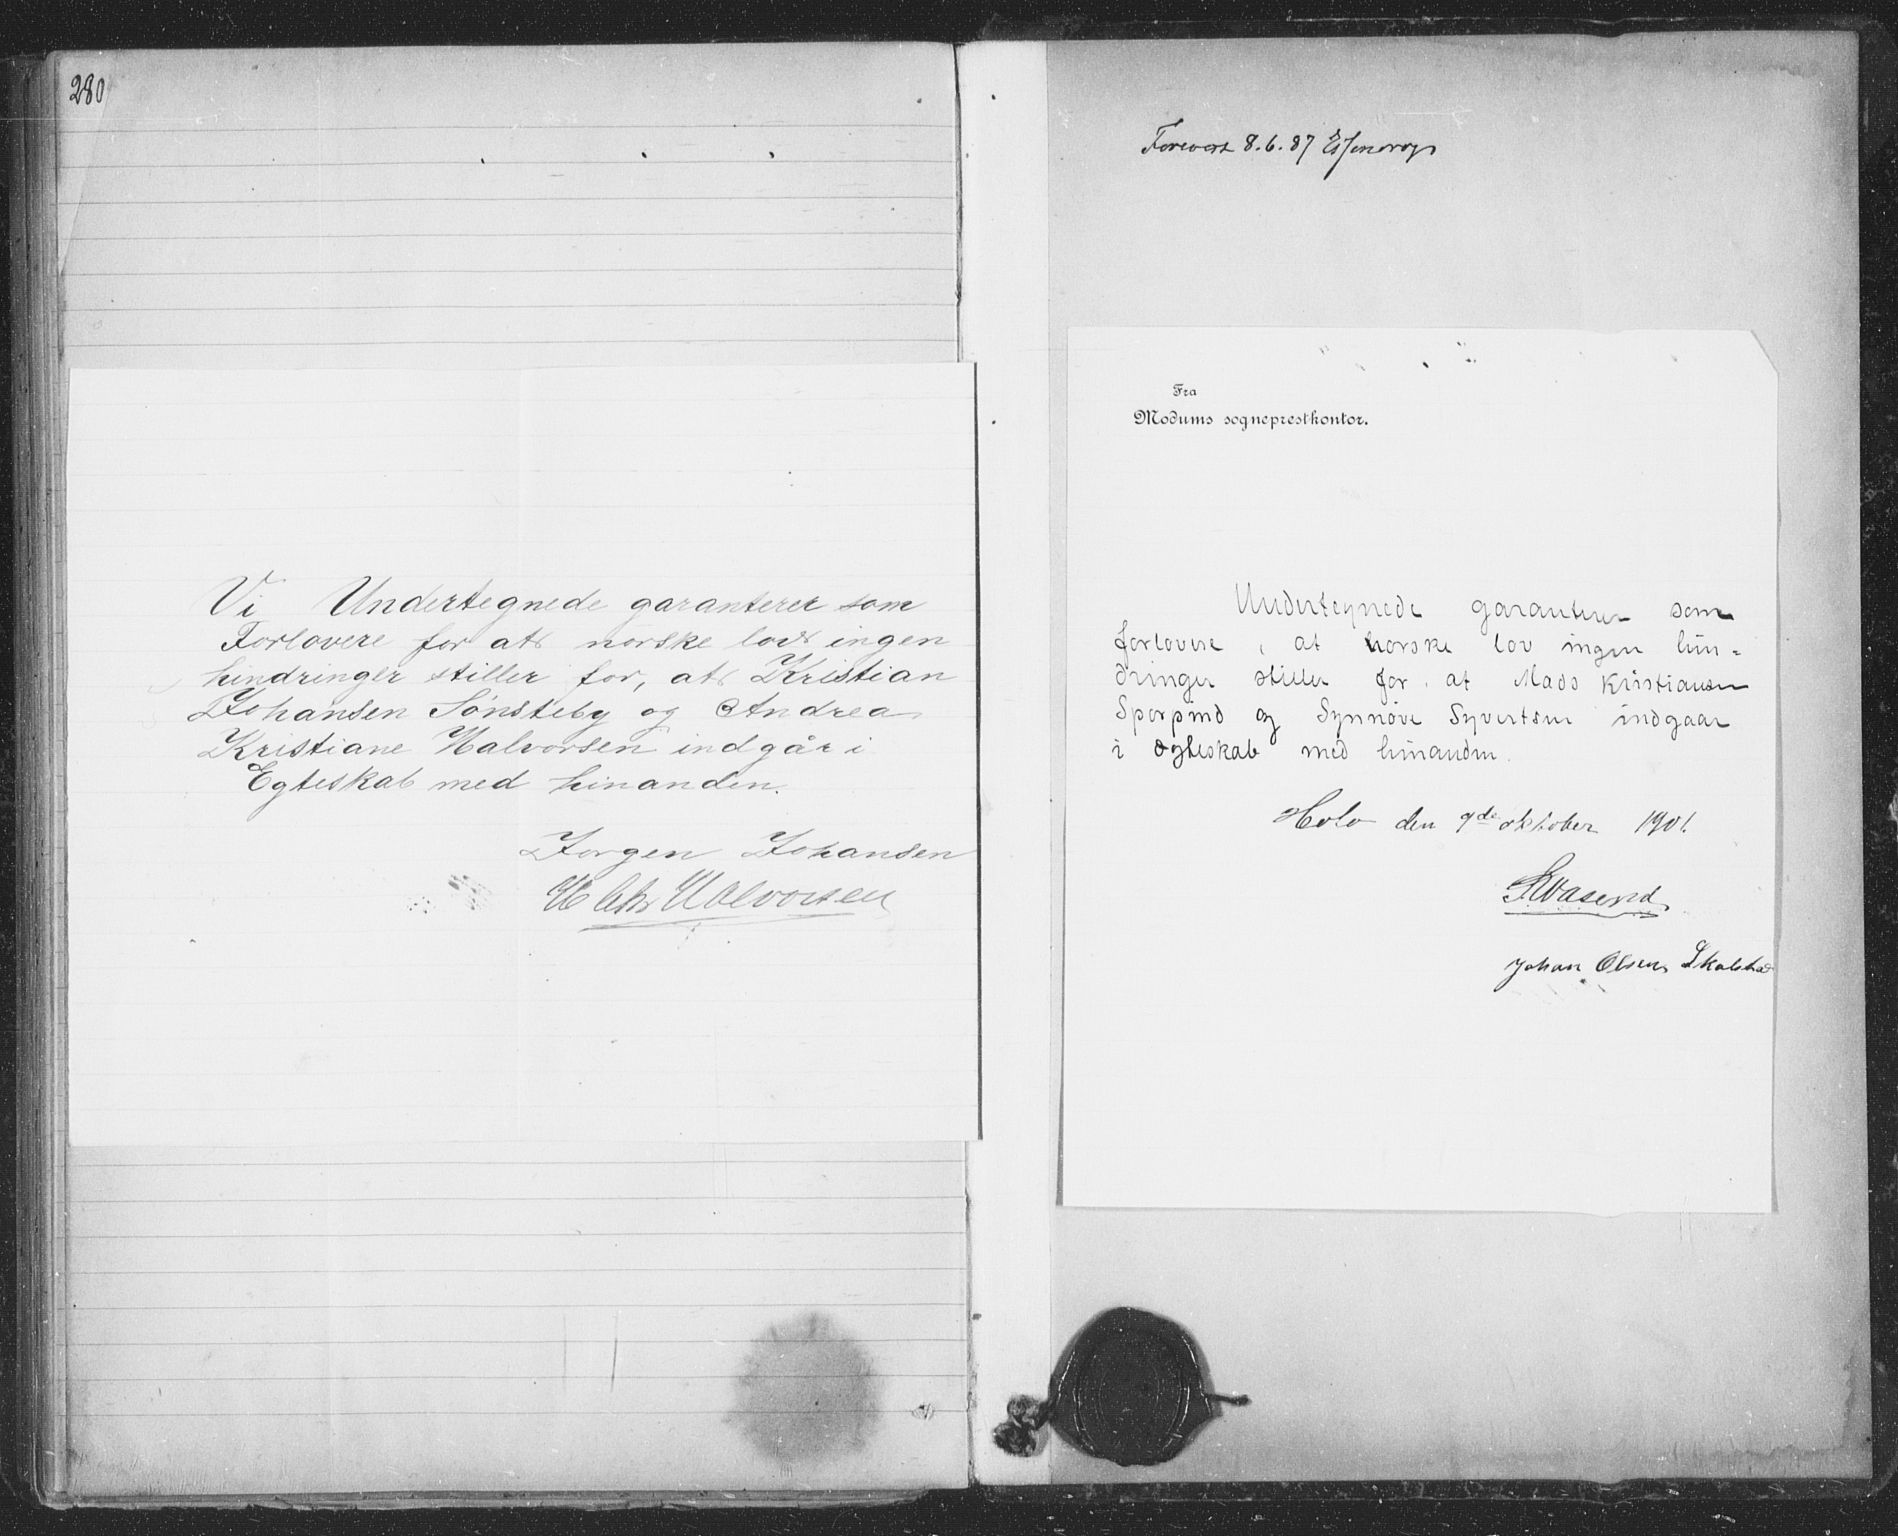 280
Vi Undertegnede garanterer som
Forlovere for at norske lov ingen
hindringer stiller for, at Kristian
Johansen Sønsteby og Andrea
Kristiane Halvorsen indgår i
Egteskab med hinanden.
Jorgen Johansen
Halvorsen
8.6.87
Fra
Modums sogneprestkontor.
Undertegnede garanterer som
forlovere, at norske lov ingen hin-
dringer stiller for at Mads Kristiansen
og Synnøve Syvertsen indgaar
i ægteskab med hinanden.
Holo den 9de oktober 1901.
Johan Olsen Skalstad